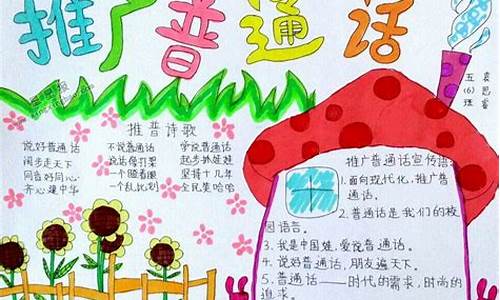 推广普通话
五(6)班
袁思睿
推普诗歌
说好普通话
阔步走天下
同音好同心
齐心建中华
不说普通话
说话像打架
一个瞪着眼
一个乱比划
学说普通话
起步娃娃
坚持十几年
全民笑哈哈
推广普通话宣传语
1.面向现代化,推广普
通话。
2.普通话是我们的校
园语言。
3.我是中国娃,爱说普通话。
4.说好普通话,朋友遍天下。
5.普通话——时代的需求,时尚的
追求。